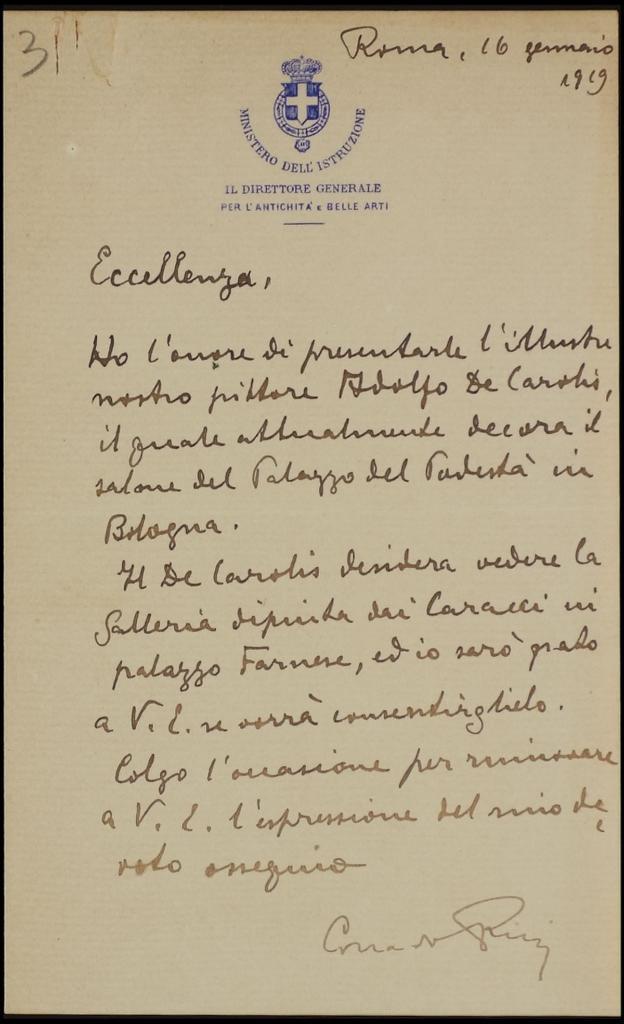 3
Roma, 16 gennaio
1919
MINISTERO DELL'ISTRUZIONE
IL DIRETTORE GENERALE
PER L'ANTICHITA' E BELLE ARTI
Eccellenza,
Ho l'onore di presentarle l'illustre
nostro pittore Adolfo De Carolis,
il quale attualmente decora il
salone del Palazzo del Podestà in
Bologna.
Il De Carolis desidera vedere la
Galleria dipinta dai Caracci in
palazzo Farnese, ed io sarò grato
a V. E. se vorrà consentirglielo.
Colgo l'occasione per rinnovare
a V. E. l'espressione del mio de-
voto ossequio
Corrado Ricci